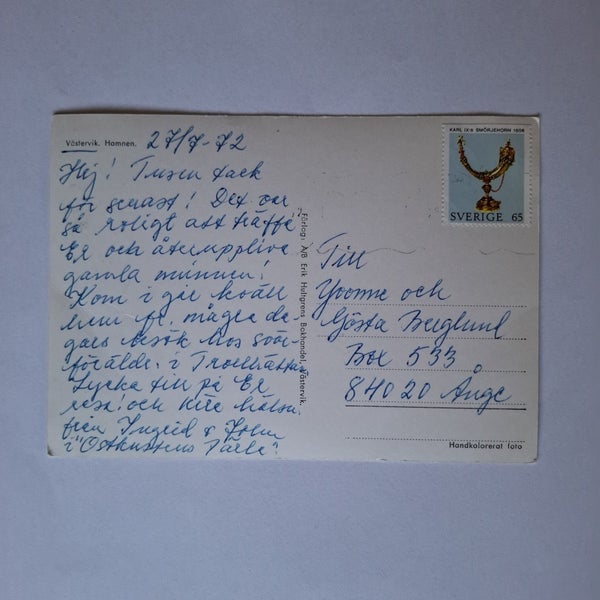 Västervik. Hamnen.
27/7-72
Hej! Tusen tack
för senast! Det var
så roligt att träffa
Er och återuppliva
gamla minnen!
Kom i går kväll
hem fr. några da-
gars besök hos svär-
föräldr. i Trollhättan
Lycka till på Er
resa! och Kära hälsn.
från Ingrid & John
i "Ostkustens Pärla"
Förlag: A/B Erik Hultgrens Bokhandel, Västervik.
KARL IX:s SMÖRJEHORN 1606
SVERIGE 65
Till
Yvonne och
Gösta Berglund
Box 533
840 20 Ånge
Handkolorerat foto